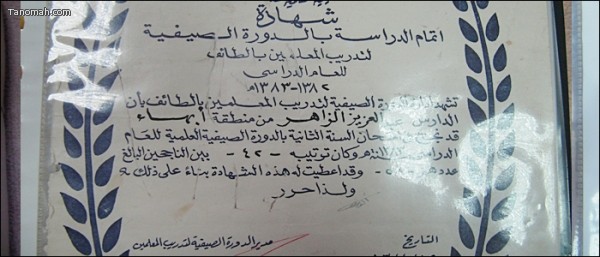 Tanomah.com
شهادة
اتمام الدراسة بالدورة الصيفية
لتدريب المعلمين بالطائف
للعام الدراسى
١٣٨٢-١٣٨٣هـ
تشهد ادارة الدورة الصيفية لتدريب المعلمين بالطائف بأن
الدارس عبد العزيز الزاهر من منطقة أبهاء
قد نجح في امتحان السنة الثانية بالدورة الصيفية العلمية للعام
الدراسى وكان ترتيبه -٤٢- بين الناجحين البالغ
عددهم وقد اعطيت له هذه الشهادة بناء على ذلك
ولذا حرر
التاريخ
مدير الدورة الصيفية لتدريب المعلمين